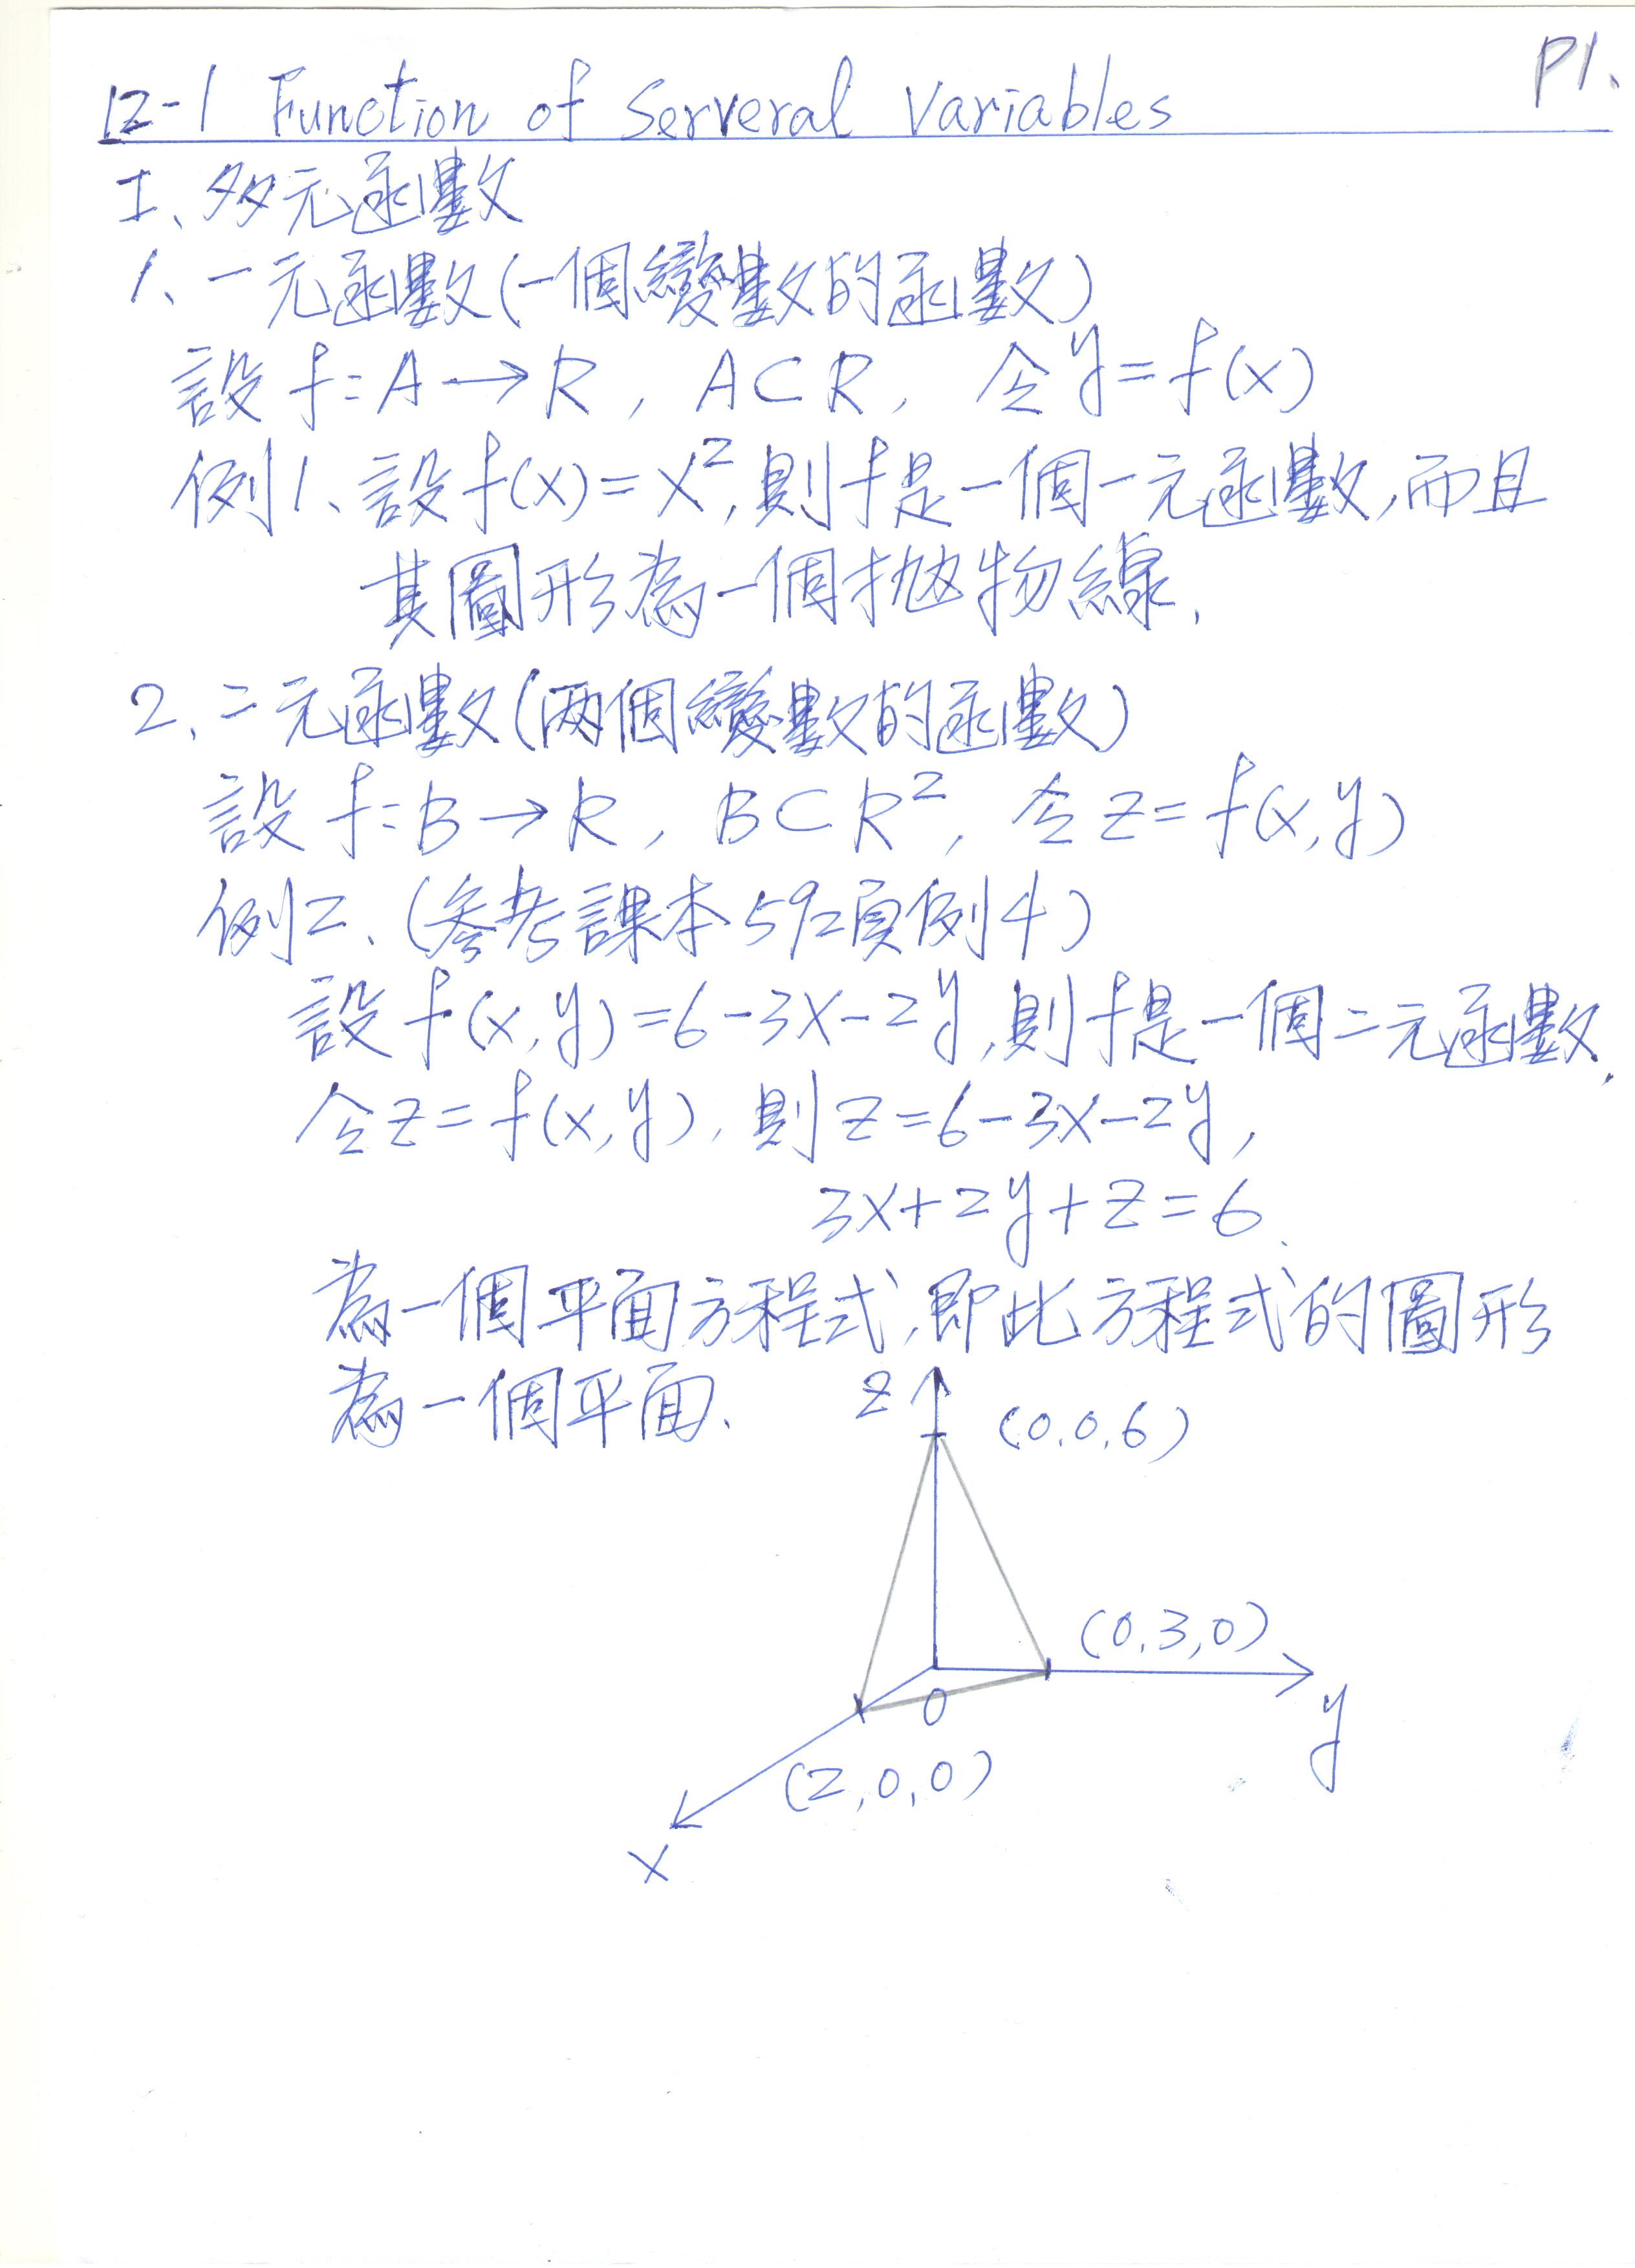 P1.
12-1 Function of Serveral Variables
I、多元函數
1、一元函數(一個變數的函數)
設 f:A→R, A⊂R, 令y=f(x)
例1、設f(x)=x²,則f是一個一元函數,而且
其圖形為一個拋物線.
2、二元函數(兩個變數的函數)
設 f:B→R, B⊂R², 令z=f(x,y)
例2、(參考課本592頁例4)
設f(x,y)=6-3x-2y,則f是一個二元函數.
令z=f(x,y),則z=6-3x-2y,
3x+2y+z=6.
為一個平面方程式,即此方程式的圖形
為一個平面.
z
(0,0,6)
(0,3,0)
0
y
(2,0,0)
x